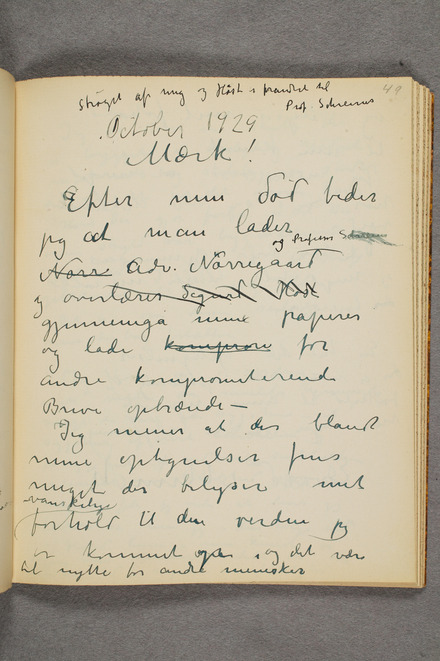 49
strøget af mig og Høst i prændet til
Prof. Schreiner
October 1929
Mærk!
Efter min Død beder
jeg at man lader
og Professor Schreiner
Nørr Adv. Nørregaard
og overlærer Sigurd Høst
gjennemgå mine papirer
og lade komprom for
andre kompromiterende
Breve opbrænde —
Jeg mener at der blandt
mine optegnelser fins
meget der belyser mit
vanskelige
forhold til den verden jeg
er kommet op i og det være
til nytte for andre mennesker